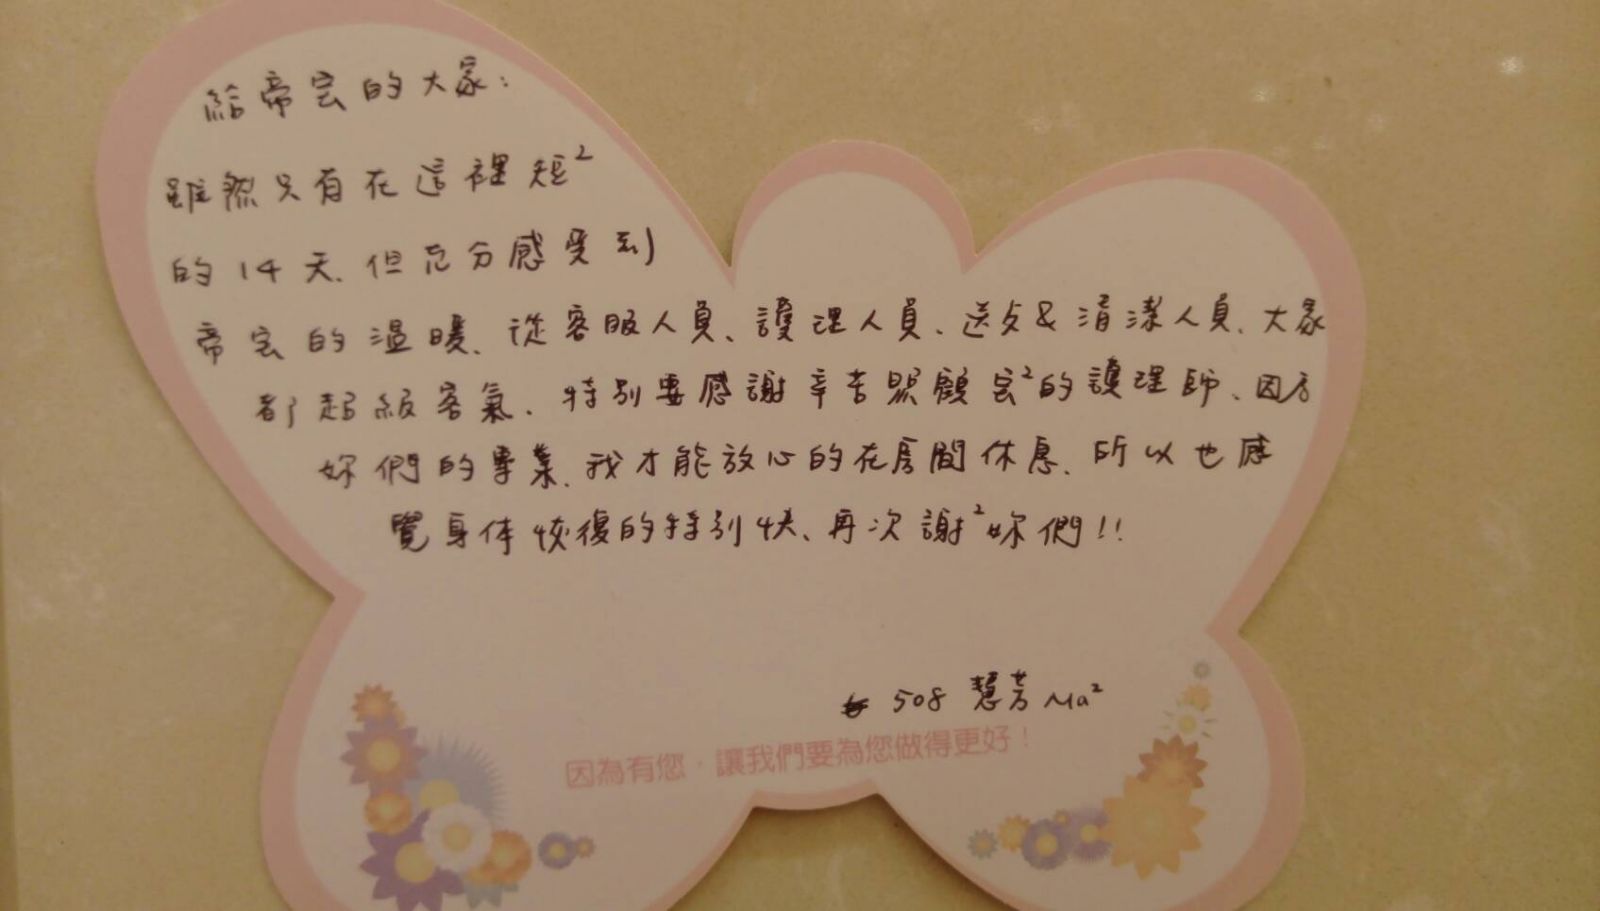 給帝宝的大家:
雖然只有在這裡短²
的14天、但充分感受到
帝宝的溫暖、從客服人員、護理人員、送歺&清潔人員、大家
都超級客氣、特別要感謝辛苦照顧宝²的護理師、因為
妳們的專業、我才能放心的在房間休息、所以也感
覺身体恢復的特別快、再次謝²妳們!!
508 慧芳 Ma²
因為有您，讓我們要為您做得更好！